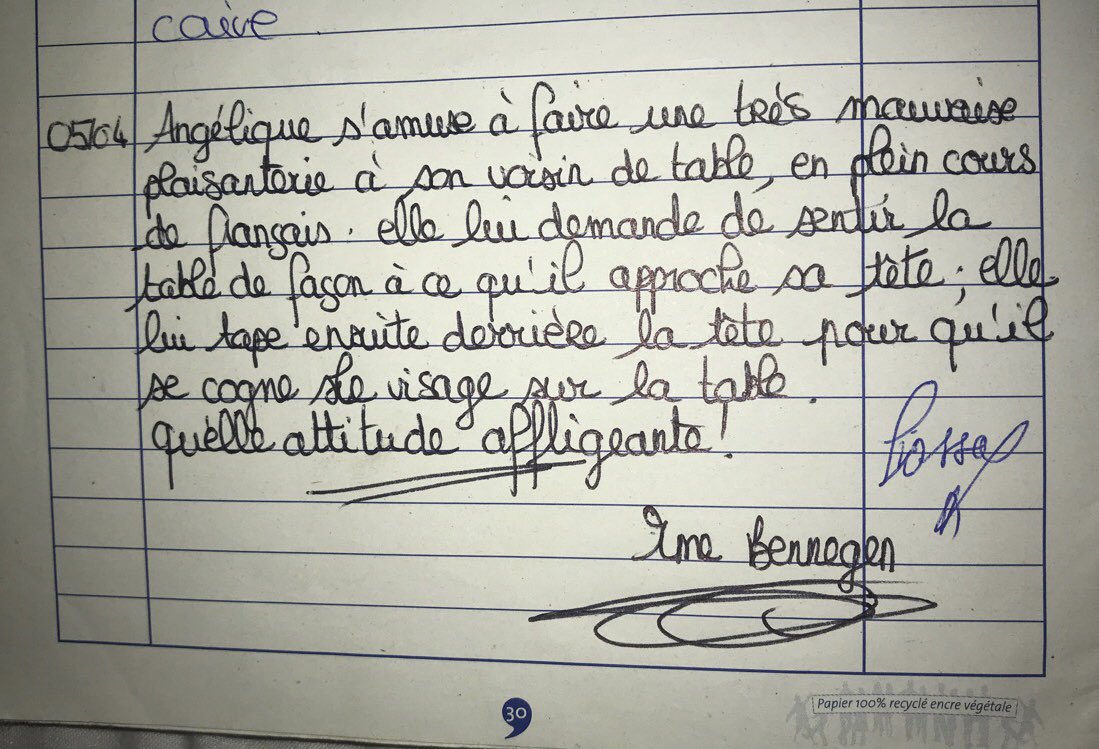 caire
05/04 Angélique s'amuse à faire une très mauvaise
plaisanterie à son voisin de table, en plein cours
de français. elle lui demande de sentir la
table de façon à ce qu'il approche sa tête ; elle
lui tape ensuite derrière la tête pour qu'il
se cogne le visage sur la table.
quelle attitude affligeante !
Mme Bennegen
30
Papier 100% recyclé encre végétale